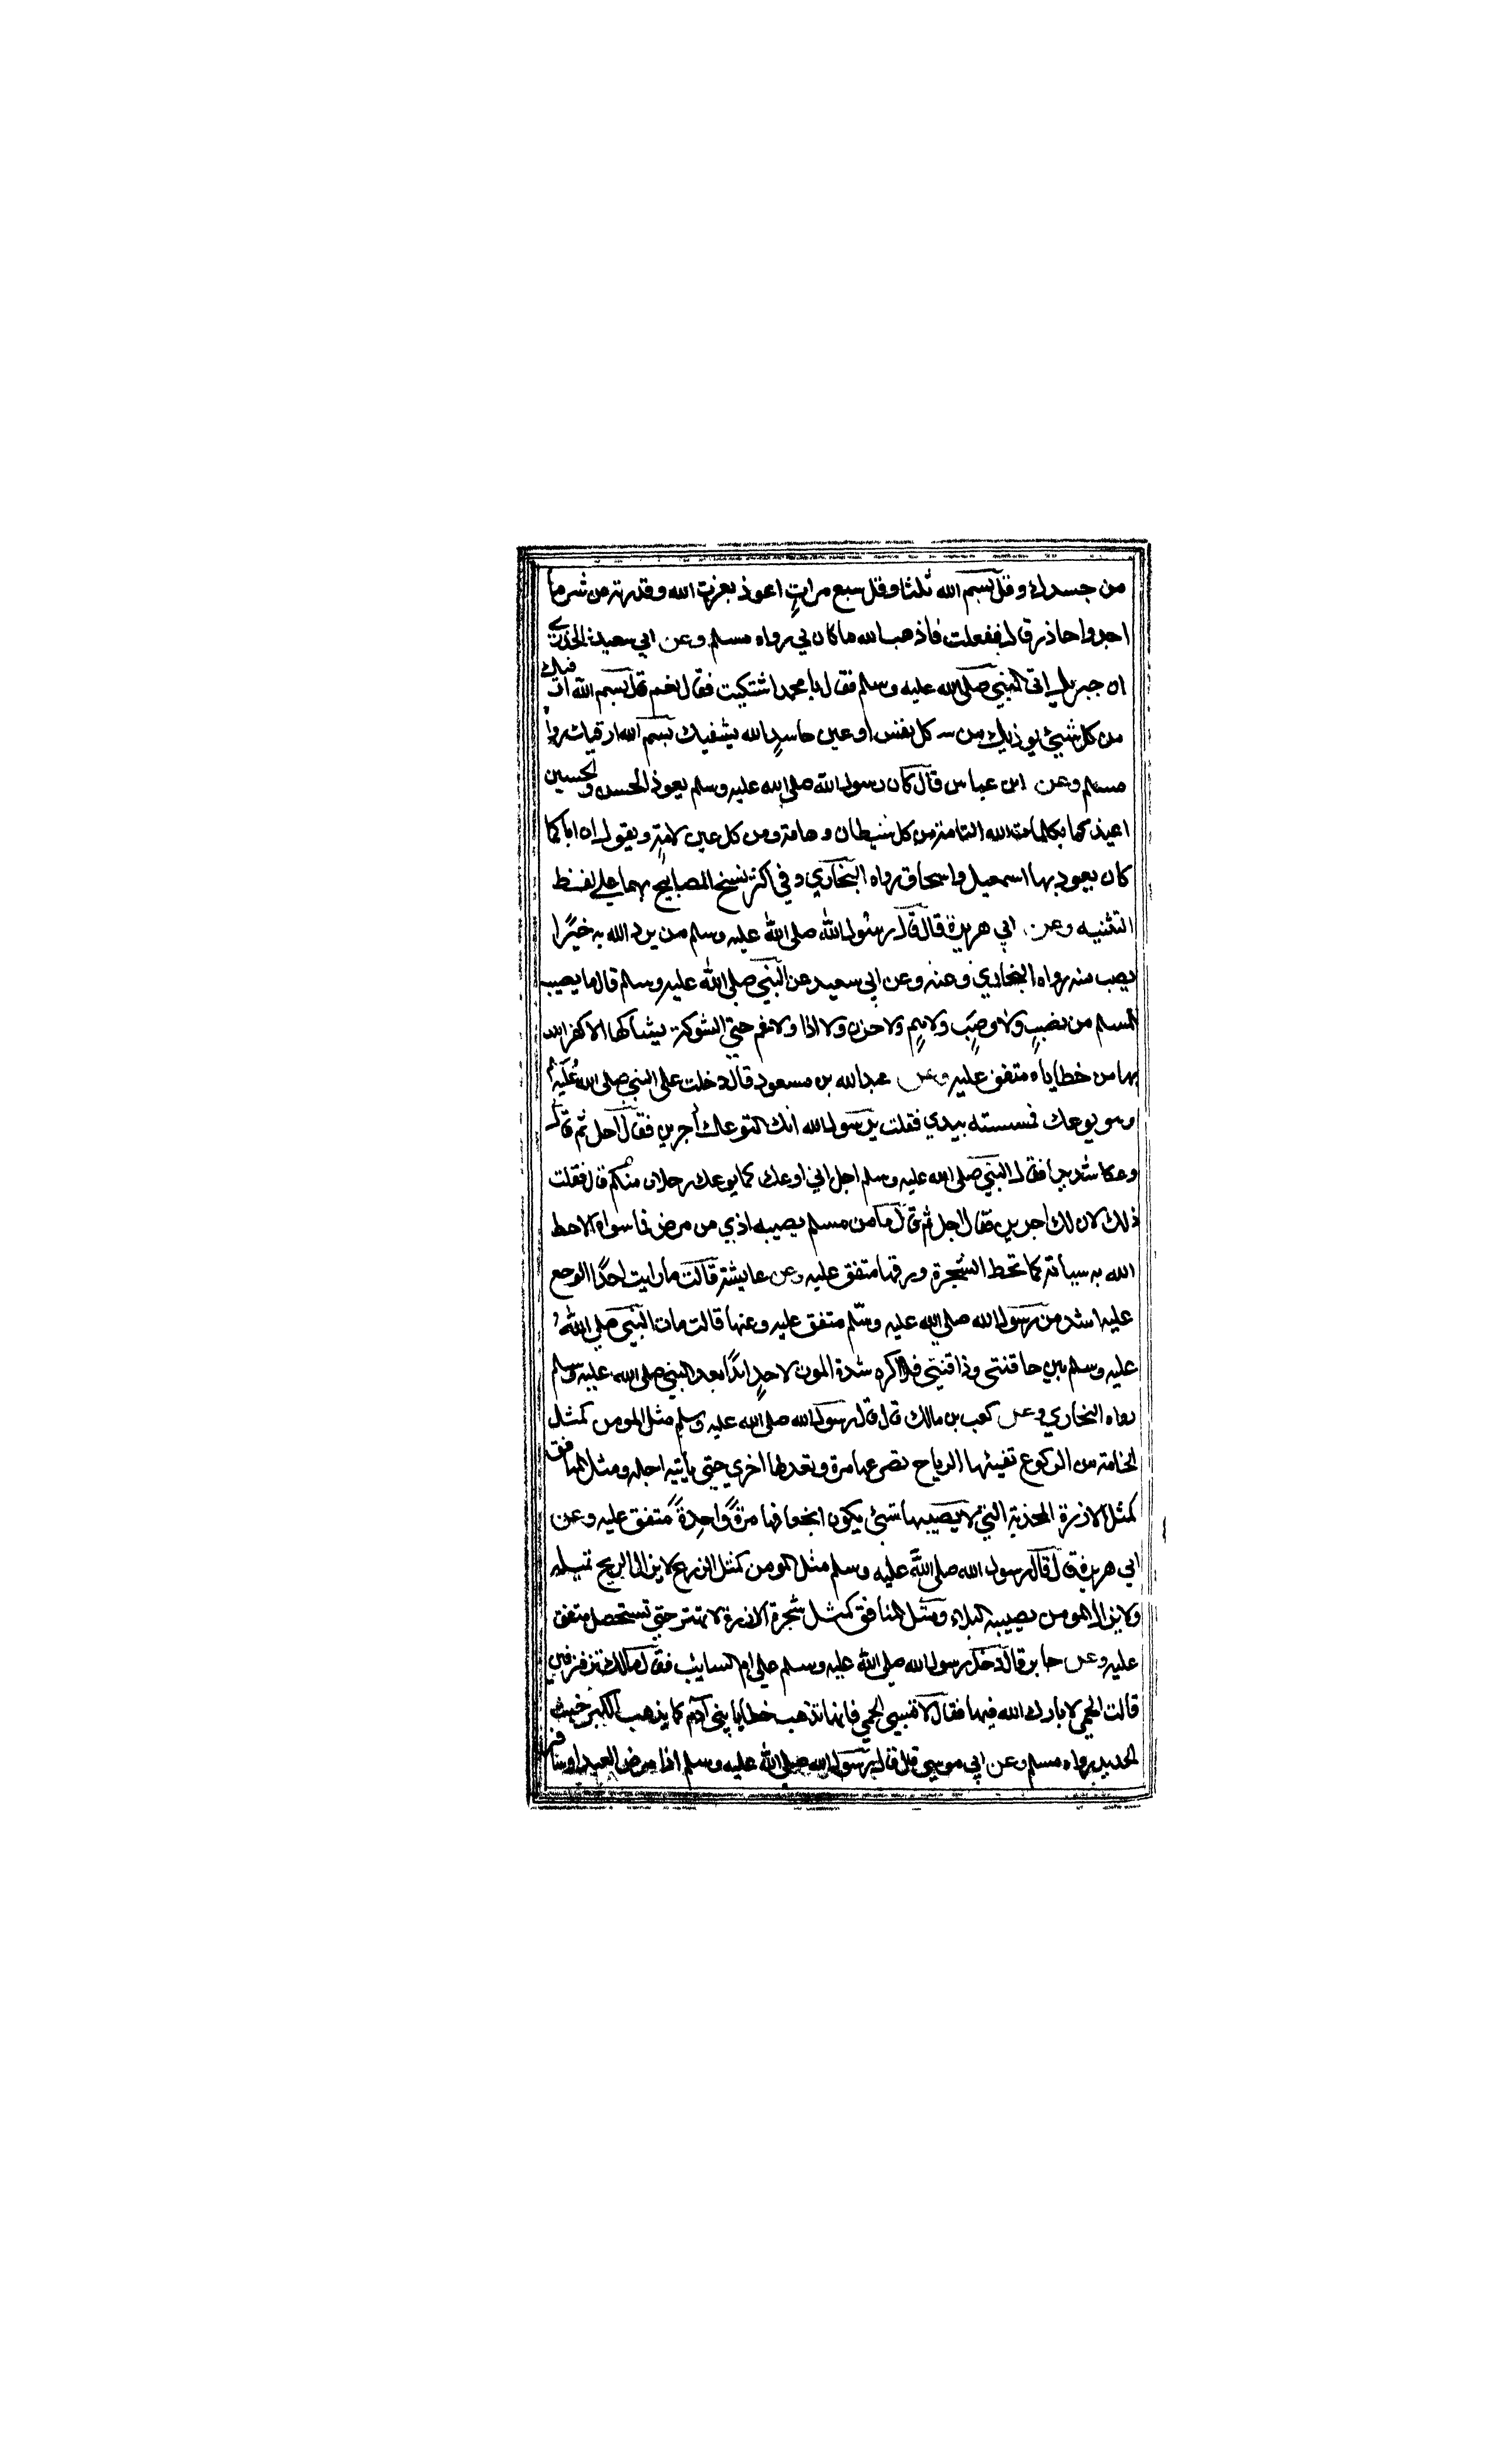 من جسدك وقل بسم الله ثلثا وقل سبع مرات اعوذ بعزة الله وقدرته من شر ما
اجد واحاذر قال ففعلت فاذهب الله ما كان بي رواه مسلم وعن ابي سعيد الخدري
ان جبريل اتى النبي صلى الله عليه وسلم فقال يا محمد اشتكيت فقال نعم قال بسم الله ارقيك
من كل شيئ يوذيك من كل نفس او عين حاسد الله يشفيك بسم الله ارقيك رواه
مسلم وعن ابن عباس قال كان رسول الله صلى الله عليه وسلم يعوذ الحسن والحسين
اعيذكما بكلمات الله التامة من كل شيطان وهامة ومن كل عين لامة ويقول ان اباكما
كان يعوذ بها اسمعيل واسحاق رواه البخاري وفي اكثر نسخ المصابيح بهما على لفظ
التثنيه وعن ابي هريرة قال قال رسول الله صلى الله عليه وسلم من يرد الله به خيرًا
يصب منه رواه البخاري وعنه وعن ابي سعيد عن النبي صلى الله عليه وسلم قال ما يصيب
المسلم من نصب ولا وصب ولا هم ولا حزن ولا اذا ولا غم حتى الشوكة يشاكها الا كفر الله
بها من خطاياه متفق عليه وعن عبدالله بن مسعود قال دخلت على النبي صلى الله عليه
وهو يوعك فمسسته بيدي فقلت يرسول الله انك لتوعك اجرين فقال اجل ثم قال
وعكا شديدا فقال النبي صلى الله عليه وسلم اجل اني اوعك كما يوعك رجلان منكم قال فقلت
ذلك لان لك اجرين فقال اجل ثم قال ما من مسلم يصيبه اذي من مرض فما سواه الا حط
الله به سيأته كما تحط الشجرة ورقها متفق عليه وعن عايشة قالت ما رايت احدًا الوجع
عليه اشد من رسول الله صلى الله عليه وسلم متفق عليه وعنها قالت مات النبي صلى الله
عليه وسلم بين حاقنتي وذاقنتي فلا اكره شدة الموت لاحد ابدًا بعد النبي صلى الله عليه وسلم
رواه البخاري وعن كعب بن مالك قال قال رسول الله صلى الله عليه وسلم مثل المومن كمثل
الخامة من الركوع تفيئها الرياح تصرعها مرة وتعدلها اخري حتى يأتيه اجله ومثل المنافق
كمثل الارزة المجذية التي لا يصيبها شيئ يكون انجعافها مرةً واحدةً متفق عليه وعن
ابي هريرة قال قال رسول الله صلى الله عليه وسلم مثل المومن كمثل الزرع لا يزال الريح تميله
ولا يزال المومن يصيبه البلاء ومثل المنافق كمثل شجرة الارزة لا تهتز حتى تستحصل متفق
عليه وعن جابر قال دخل رسول الله صلى الله عليه وسلم على ام السايب فقال مالك تزفزفين
قالت الحمى لا بارك الله فيها فقال لا تسبي الحمي فانها تذهب خطايا بني آدم كما يذهب الكير خبث
الحديد رواه مسلم وعن ابي موسي قال قال رسول الله صلى الله عليه وسلم اذا مرض العبد او سافر